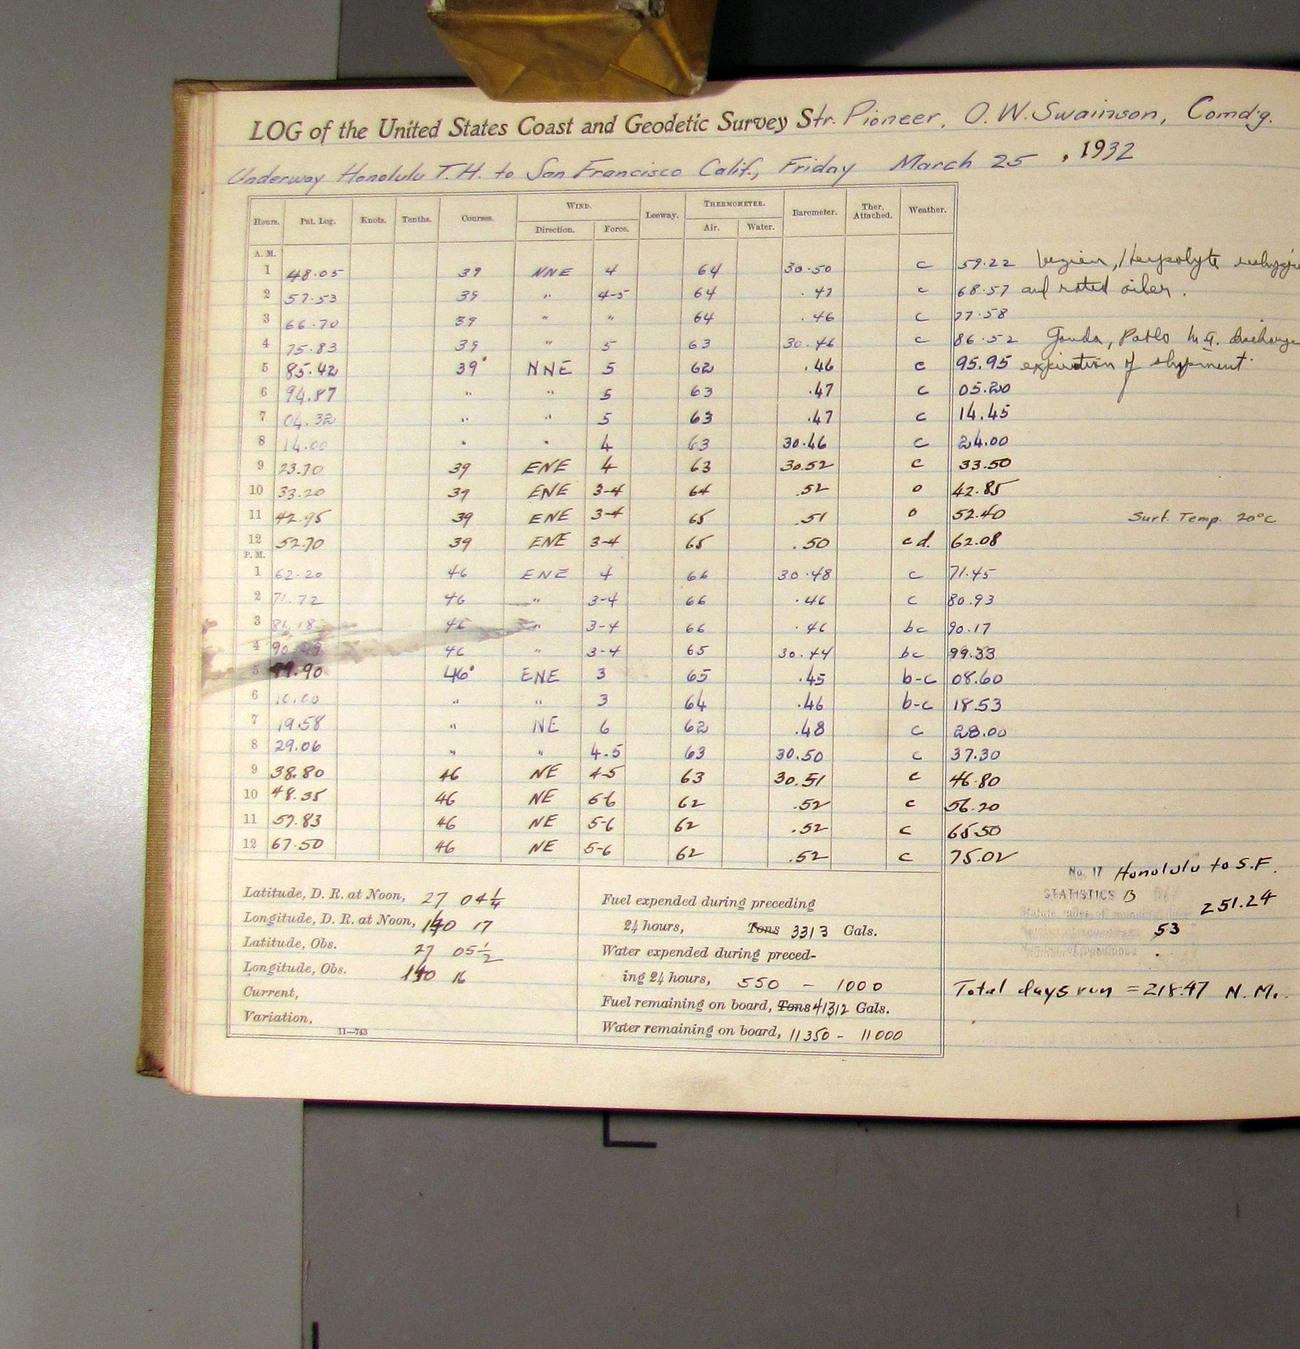 LOG of the United States Coast and Geodetic Survey Str. Pioneer, O. W. Swainson, Comd'g.
Underway Honolulu T.H. to San Francisco Calif., Friday March 25, 1932
Hours. Pat. Log. Knots. Tenths. Courses. WIND. Leeway. THERMOMETER. Barometer. Ther. Attached. Weather.
Direction. Force. Air. Water.
A. M.
1 48.05 39 NNE 4 64 30.50 c 59.22
2 57.53 39 " 4-5 64 .47 c 68.57 and rated oiler.
3 66.70 39 " " 64 .46 c 77.58
4 75.83 39 " 5 63 30.46 c 86.52 Pablo discharge
5 85.42 39° NNE 5 62 .46 c 95.95 expiration of
6 94.87 " " 5 63 .47 c 05.20
7 04.32 " " 5 63 .47 c 14.45
8 14.00 " " 4 63 30.46 c 24.00
9 23.70 39 ENE 4 63 30.52 c 33.50
10 33.20 39 ENE 3-4 64 .52 o 42.85
11 42.95 39 ENE 3-4 65 .51 o 52.40 Surf. Temp. 20°C
12 52.70 39 ENE 3-4 65 .50 c d. 62.08
P. M.
1 62.20 46 ENE 4 66 30.48 c 71.45
2 71.72 46 " 3-4 66 .46 c 80.93
3 46 " 3-4 66 .46 bc 90.17
4 46 " 3-4 65 30.44 bc 99.33
5 99.90 46° ENE 3 65 .45 b-c 08.60
6 " " 3 64 .46 b-c 18.53
7 19.58 " NE 6 62 .48 c 28.00
8 29.06 " " 4.5 63 30.50 c 37.30
9 38.80 46 NE 4-5 63 30.51 c 46.80
10 48.35 46 NE 5-6 62 .52 c 56.20
11 57.83 46 NE 5-6 62 .52 c 65.50
12 67.50 46 NE 5-6 62 .52 c 75.02
No. 17 Honolulu to S.F.
STATISTICS B
251.24
53
Total days run = 218.47 N.M.
Latitude, D. R. at Noon, 27 04¼
Longitude, D. R. at Noon, 140 17
Latitude, Obs. 27 05½
Longitude, Obs. 140 16
Current,
Variation,
11—763
Fuel expended during preceding
24 hours, Tons 3313 Gals.
Water expended during preced-
ing 24 hours, 550 - 1000
Fuel remaining on board, Tons 41312 Gals.
Water remaining on board, 11350 - 11000